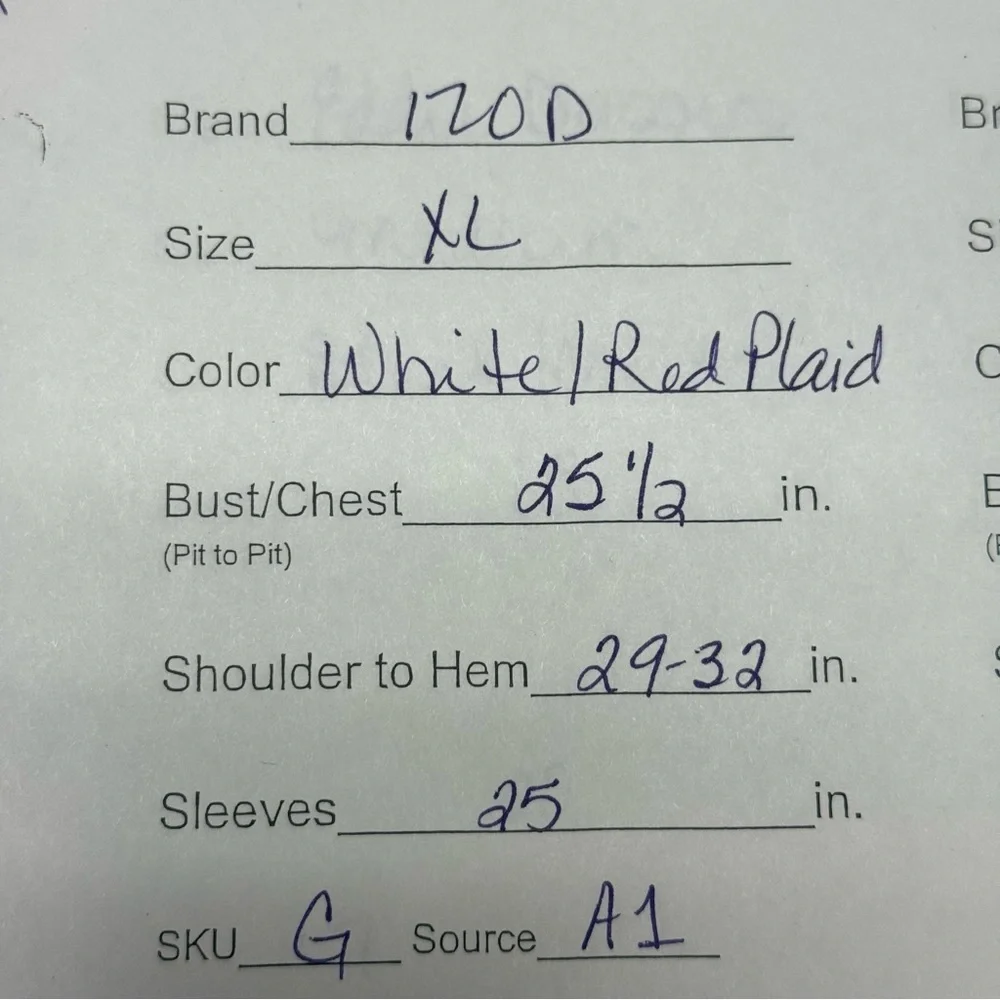 Brand IZOD
Size XL
Color White/Red Plaid
Bust/Chest 25 1/2 in.
(Pit to Pit)
Shoulder to Hem 29-32 in.
Sleeves 25 in.
SKU G Source A1